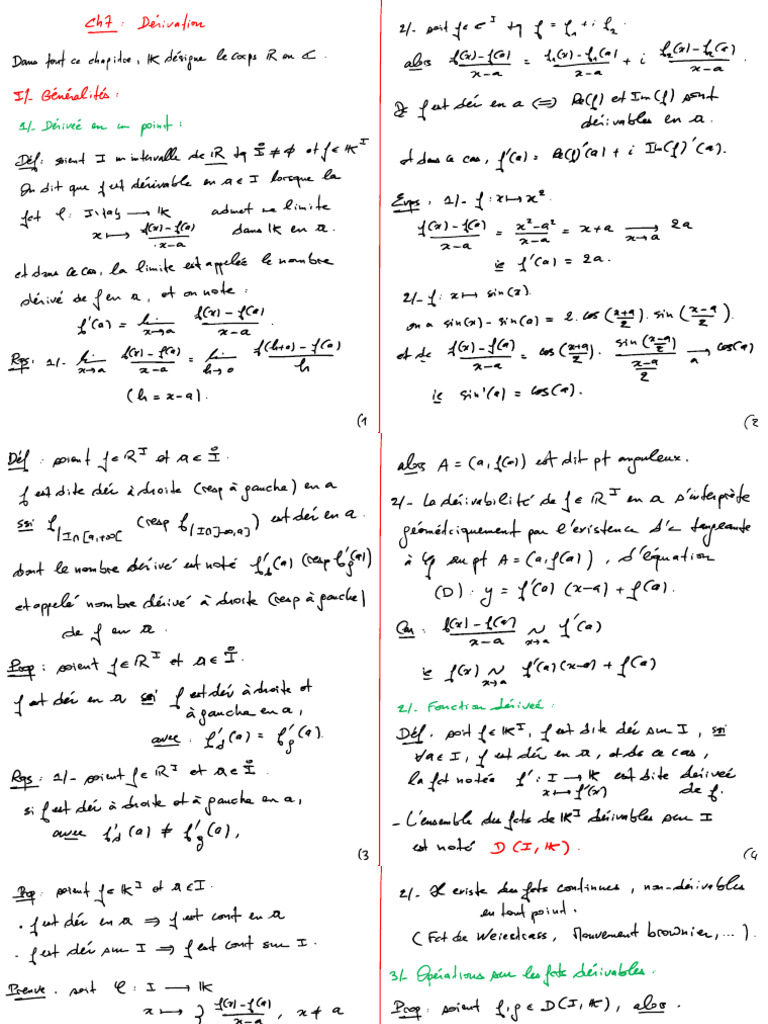 Ch7 : Dérivation
Dans tout ce chapitre, IK désigne le corps IR ou C.
I/- Généralités :
1/- Dérivée en un point :
Déf : soient I un intervalle de IR tq I̊ ≠ ∅ et f ∈ IK^I
On dit que f est dérivable en a ∈ I lorsque la
fct φ : I\{a} → IK admet une limite
x ↦ (f(x)-f(a))/(x-a) dans IK en a.
et dans ce cas, la limite est appelée le nombre
dérivé de f en a, et on note :
f'(a) = lim_{x→a} (f(x)-f(a))/(x-a)
Rqs : 1/- lim_{x→a} (f(x)-f(a))/(x-a) = lim_{h→0} (f(h+a)-f(a))/h
(h = x-a).
(1
2/- soit f ∈ C^I tq f = f₁ + i f₂.
alors (f(x)-f(a))/(x-a) = (f₁(x)-f₁(a))/(x-a) + i (f₂(x)-f₂(a))/(x-a)
f est dér en a ⟺ Re(f) et Im(f) sont
dérivables en a.
et dans ce cas, f'(a) = Re(f)'(a) + i Im(f)'(a).
Exps : 1/- f : x ↦ x².
(f(x)-f(a))/(x-a) = (x²-a²)/(x-a) = x+a →_{x→a} 2a
ie f'(a) = 2a.
2/- f : x ↦ sin(x).
on a sin(x)-sin(a) = 2.cos((x+a)/2).sin((x-a)/2).
et dc (f(x)-f(a))/(x-a) = cos((x+a)/2). sin((x-a)/2)/((x-a)/2) →_a cos(a)
ie sin'(a) = cos(a).
(2
Déf : soient f ∈ IR^I et a ∈ I̊.
f est dite dér à droite (resp à gauche) en a
ssi f/I∩[a,+∞[ (resp f/I∩]-∞,a]) est dér en a.
dont le nombre dérivé est noté f'_d(a) (resp f'_g(a))
et appelé nombre dérivé à droite (resp à gauche)
de f en a.
Prop : soient f ∈ IR^I et a ∈ I̊.
f est dér en a ssi f est dér à droite et
à gauche en a,
avec f'_d(a) = f'_g(a).
Rqs : 1/- soient f ∈ IR^I et a ∈ I̊.
si f est dér à droite et à gauche en a,
avec f'_d(a) ≠ f'_g(a),
(3
alors A = (a, f(a)) est dit pt anguleux.
2/- La dérivabilité de f ∈ IR^I en a s'interprète
géométriquement par l'existence d'une tangente
à Cf au pt A = (a, f(a)), d'équation
(D) : y = f'(a) (x-a) + f(a).
Car : (f(x)-f(a))/(x-a) ~_{x→a} f'(a)
ie f(x) ~_{x→a} f'(a)(x-a) + f(a)
2/- Fonction dérivée :
Déf. soit f ∈ IK^I, f est dite dér sur I, ssi
∀a ∈ I, f est dér en a, et ds ce cas,
la fct notée f' : I → IK est dite dérivée
x ↦ f'(x) de f.
- L'ensemble des fcts de IK^I dérivables sur I
est noté D(I, IK).
(4
Prop : soient f ∈ IK^I et a ∈ I.
. f est dér en a ⟹ f est cont en a
. f est dér sur I ⟹ f est cont sur I.
Preuve. soit φ : I → IK
x ↦ { (f(x)-f(a))/(x-a), x ≠ a
2/- Il existe des fcts continues, non-dérivables
en tout point.
(Fct de Weierstrass, Mouvement brownien, ...).
3/- Opérations sur les fcts dérivables.
Prop : soient f, g ∈ D(I, IK), alors.